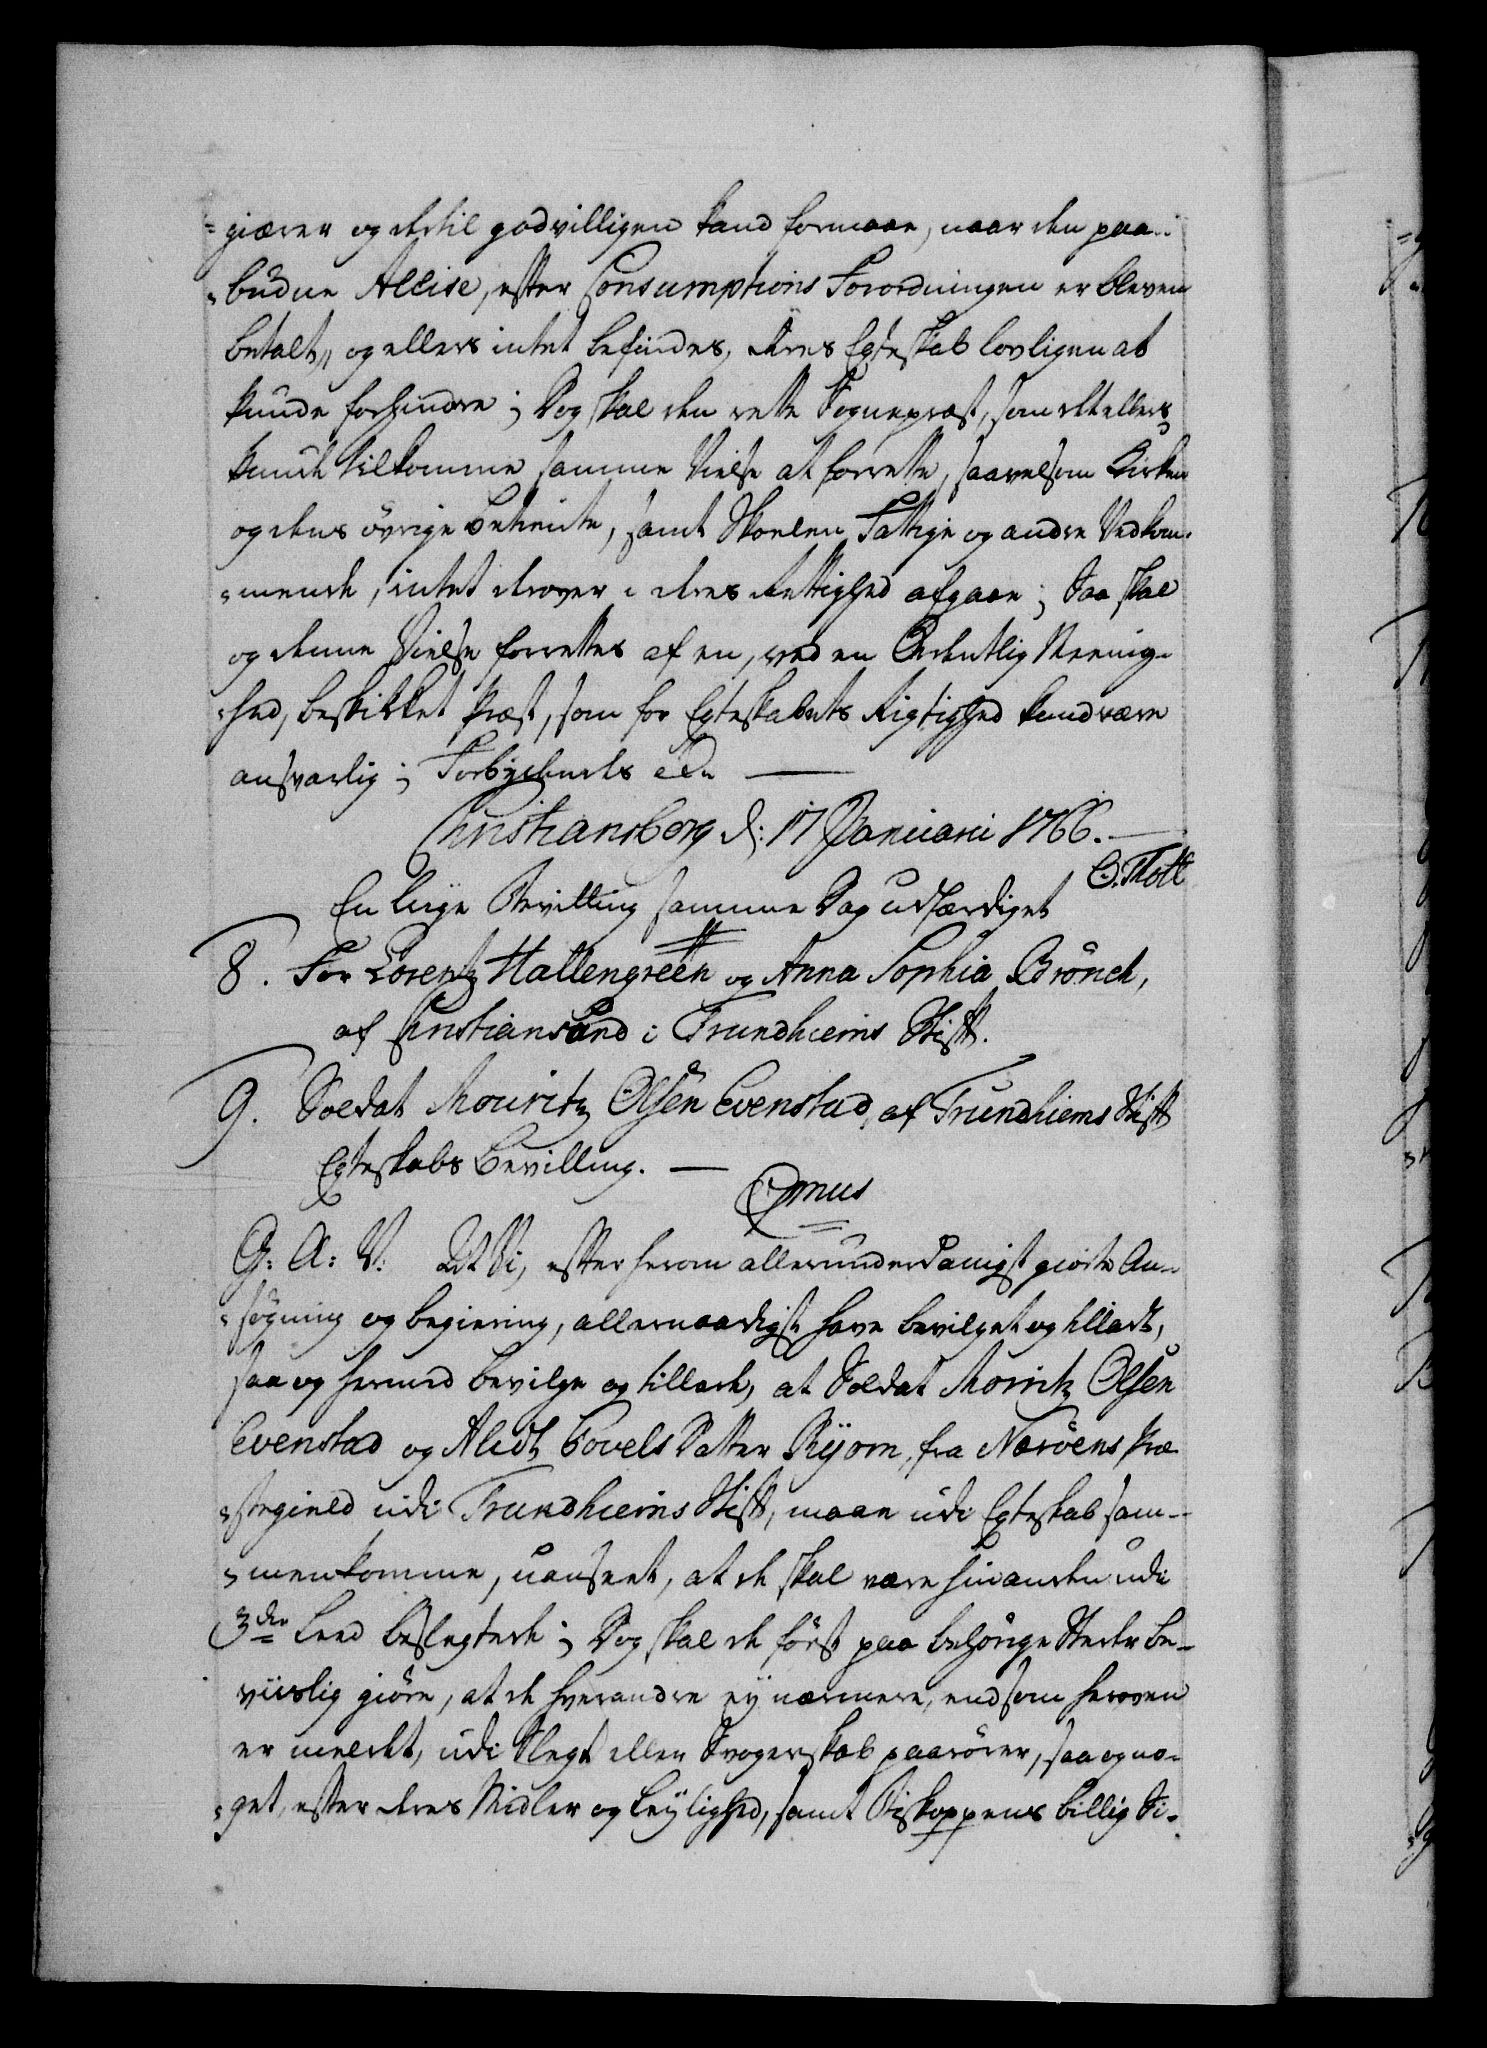 =giærer og dertil godvilligen kand formaae, naar den paa-
=budne Accise, efter Consumptions Forordningen er bleven
betalt, og ellers intet befindes, deres Egteskab lovligen at
kunde forhindre; Dog skal den rette Sognepræst, som det ellers
kunde tilkomme samme Vielse at forrette, saavelsom Kirken
og dens övrige betiente, samt Skolen, Fattige og andre Vedkom-
=mende, intet derover i deres Rettighed afgaae; Saa skal
og denne Vielse forrettes af en, ved en Ordentlig Meenig-
=hed, beskikket Præst, som for Egteskabets Rigtighed kand være
ansvarlig; Forbydendes etc.
Christiansborg d: 17 Januarii 1766.
O. Thott
En liige Bevilling samme Dag udfærdiget
8. For Lorentz Hallengreen og Anna Sophia Brönch,
af Christiansund i Trundhiems Stift.
9. Soldat Mouritz Olsen Evenstad, af Trundhiems Stift
Egteskabs Bevilling.
G: A: V: At Vi, efter herom allerunderdanigst giorte An-
=søgning og begiering, allernaadigst have bevilget og tilladt,
saa og hermed bevilge og tillade, at Soldat Moritz Olsen
Evenstad og Aledt Povels Datter Ryom, fra Næröens Præ
=stegield udi Trundhiems Stift, maae udi Egteskab sam-
=menkomme, uanseet, at de skal være hinanden udi
3die Leed beslegtede; Dog skal de först paa behörige Steder be-
viislig giöre, at de hverandre ey nærmere, end som heroven
er meeldt, udi Slegt eller Svogerskab paarörer, saa og no-
=get, efter deres Midler og Leylighed, samt Biskoppens billig Si-